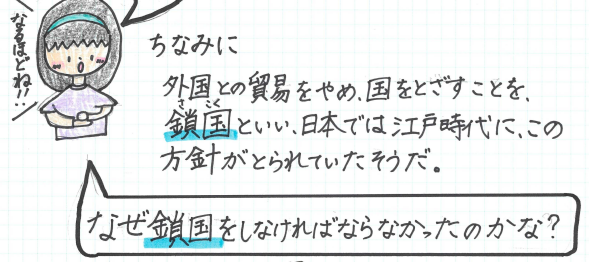 なるほどね!!
ちなみに
外国との貿易をやめ、国をとざすことを、
さこく
鎖国といい、日本では江戸時代に、この
方針がとられていたそうだ。
なぜ鎖国をしなければならなかったのかな?